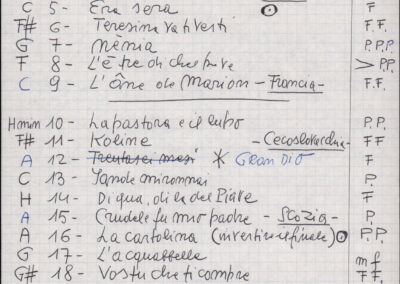 C 5 - Era sera F
F# 6 - Teresina vativesti F.F.
G 7 - Nènia P.P.P.
F 8 - L'è tre dì che > PP.
C 9 - L'Âne de Marion - Francia - F.F.
Hmin 10 - La pastora e il lupo P.P.
F# 11 - Koline - Cecoslovacchia - FF
A 12 - Trentasei mesi * GRAN DIO F
C 13 - P.
H 14 - Di qua, di là del Piave F
A 15 - Crudele fu mio padre - Scozia - P.
A 16 - La cartolina (invertire finale) P.P.
G 17 - L'acquabella mf
G# 18 - Vostu che ti compre F.F.